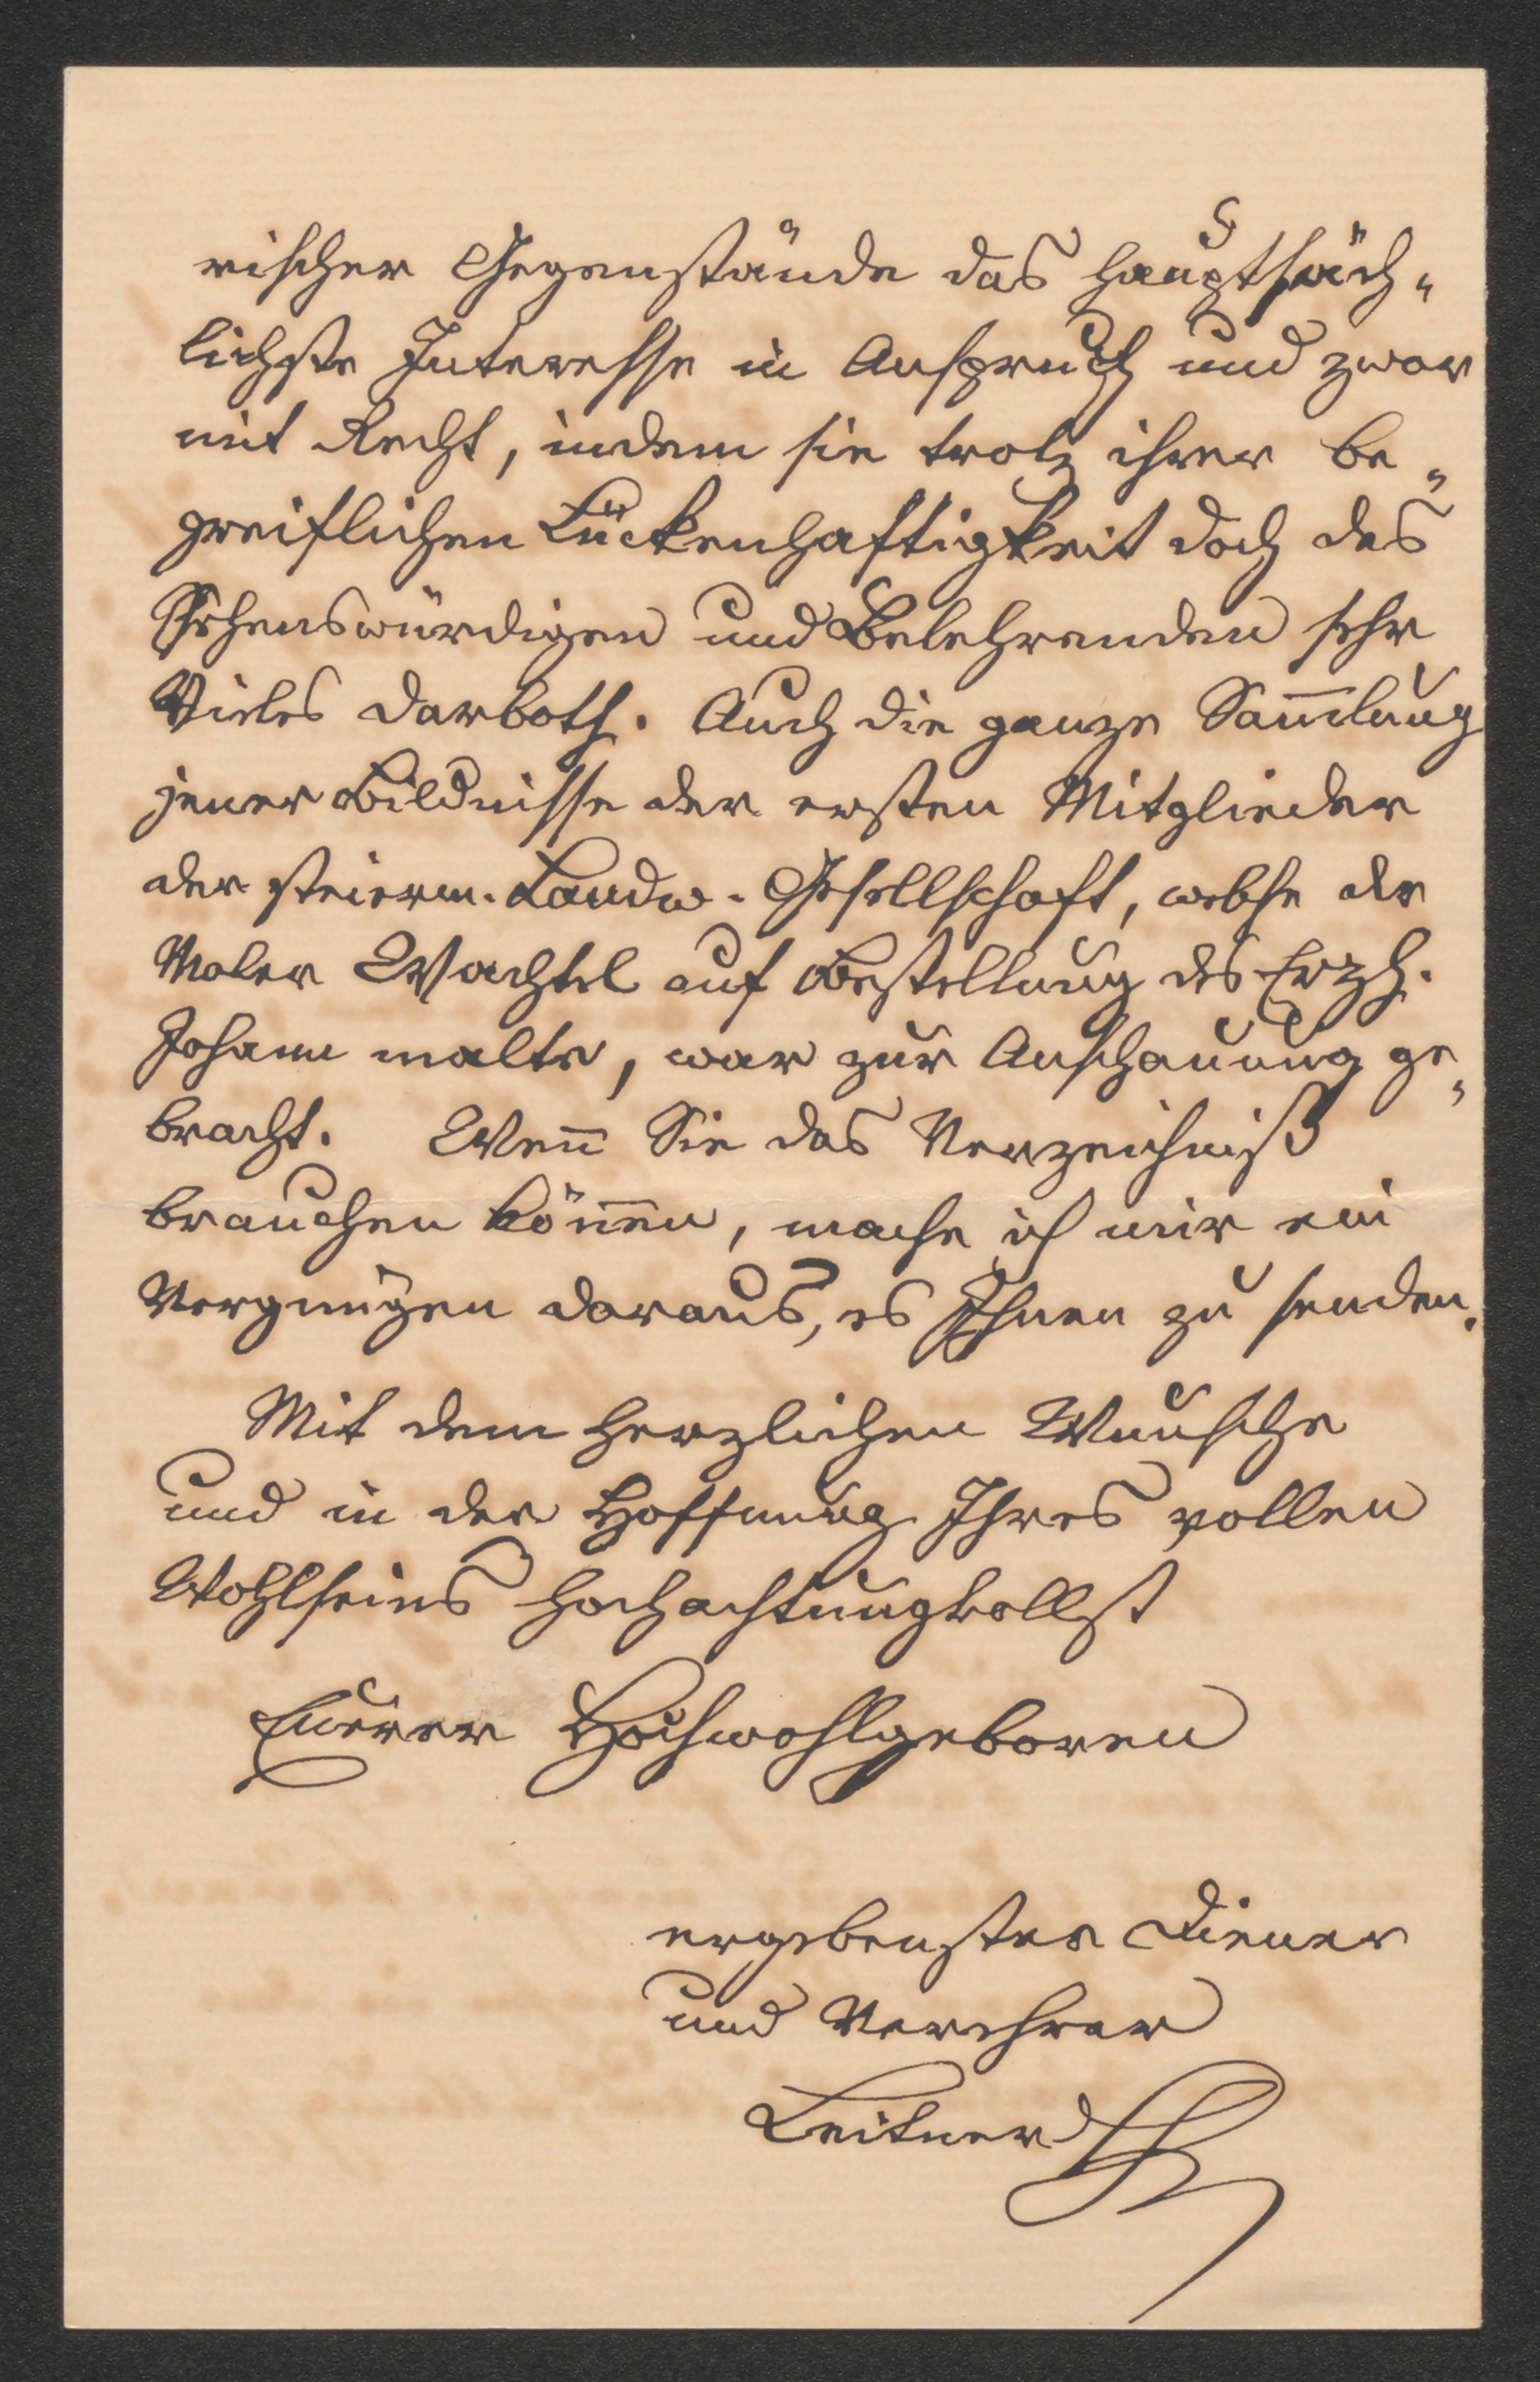 rischer Gegenstände das hauptsäch„
lichste Interesse in Anspruch und zwar
mit Recht, indem sie trotz ihrer be„
greiflichen Lückenhaftigkeit doch des
Sehenswürdigen und Belehrenden sehr
Vieles darboth. Auch die ganze Sam̄lung
jener Bildnisse der ersten Mitglieder
der steierm. Landw. Gesellschaft, welche der
Maler Wachtel auf Bestellung des Erzh.
Johann malte, war zur Anschauung ge„
bracht. Wen̄ Sie das Verzeichniß
brauchen kön̄en, mache ich mir ein
Vergnügen daraus, es Ihnen zu senden.
Mit dem herzlichen Wunsche
und in der Hoffnung Ihres vollen
Wohlseins hochachtungvollst
Euerer Hochwohlgeboren
ergebenster Diener
und Verehrer
Leitner